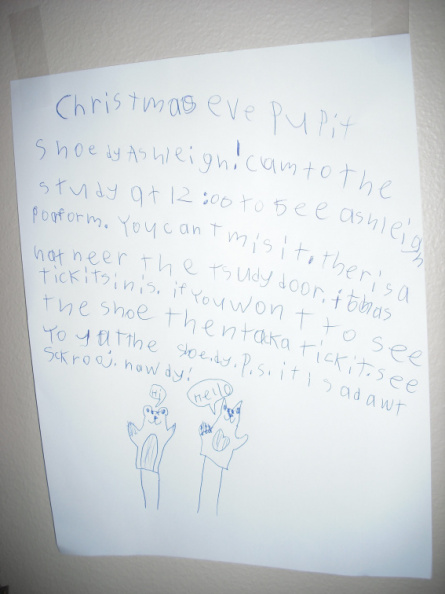 Christmas eve Pupit
Shoe dy Ashleigh! Cam to the
study at 12:00 to see ashleigh
porform. You can t mis it. ther is a
hat neer the tsudy door. it has
tickits in is. if You won t to see
the shoe then taka tickit. see
Yo yat the shoe. dy. P.s. it is adawt
Sckrooj. howdy!
Hi
Hello